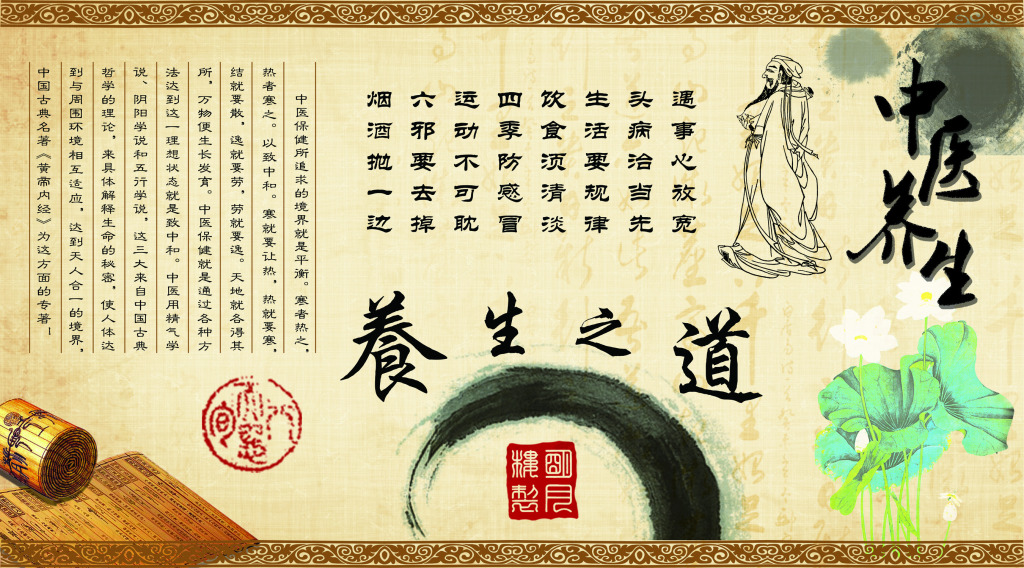 中医养生
遇事心放宽
头病治当先
生活要规律
饮食须清淡
四季防感冒
运动不可耽
六邪要去掉
烟酒抛一边
中医保健所追求的境界就是平衡。寒者热之，
热者寒之。以致中和。寒就要让热，热就要寒，
结就要散，逸就要劳，劳就要逸。天地就各得其
所，万物便生长发育。中医保健就是通过各种方
法达到这一理想状态就是致中和。中医用精气学
说、阴阳学说和五行学说，这三大来自中国古典
哲学的理论，来具体解释生命的秘密，使人体达
到与周围环境相互适应，达到天人合一的境界，
中国古典名著《黄帝内经》为这方面的专著！
養生之道
明月
樓製